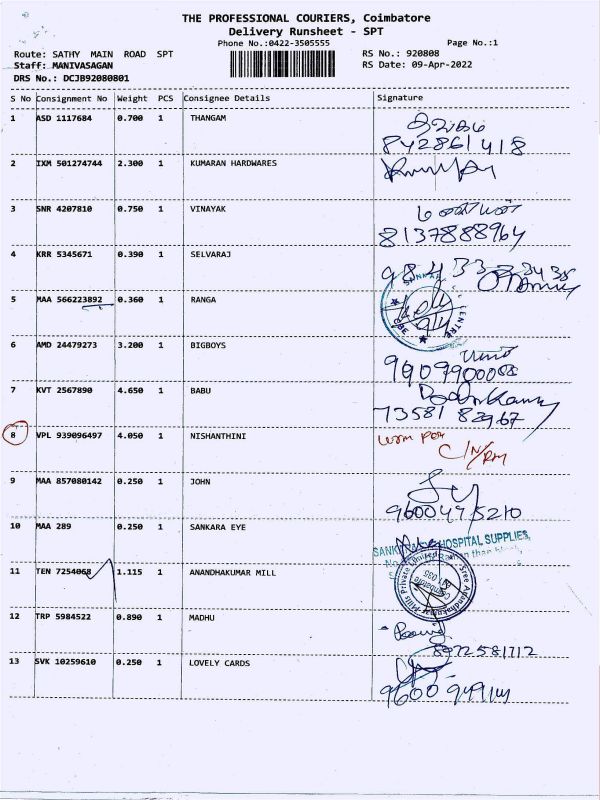 THE PROFESSIONAL COURIERS, Coimbatore
Delivery Runsheet - SPT
Phone No.:0422-3505555
Page No.:1
Route: SATHY MAIN ROAD SPT
RS No.: 920808
Staff: MANIVASAGAN
RS Date: 09-Apr-2022
DRS No.: DCJB92080801
S No Consignment No Weight PCS Consignee Details Signature
1 ASD 1117684 0.700 1 THANGAM
842861418
2 IXM 501274744 2.300 1 KUMARAN HARDWARES
3 SNR 4207810 0.750 1 VINAYAK
8137888964
4 KRR 5345671 0.390 1 SELVARAJ
5 MAA 566223892 0.360 1 RANGA
CBE CENTRE
6 AMD 24479273 3.200 1 BIGBOYS
9909900088
7 KVT 2567890 4.650 1 BABU
73581 82967
8 VPL 939096497 4.050 1 NISHANTHINI
C/N/RM
9 MAA 857080142 0.250 1 JOHN
9600475210
10 MAA 289 0.250 1 SANKARA EYE
HOSPITAL SUPPLIES,
11 TEN 7254068 1.115 1 ANANDHAKUMAR MILL
Sree Anandhakumar Mills Private Limited
12 TRP 5984522 0.890 1 MADHU
8972581712
13 SVK 10259610 0.250 1 LOVELY CARDS